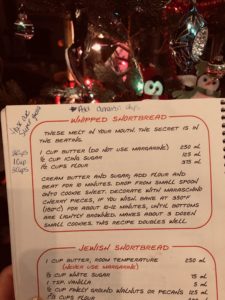 * Add cinnamon chips.
WHIPPED SHORTBREAD
THESE MELT IN YOUR MOUTH. THE SECRET IS IN
THE BEATING.
1 CUP BUTTER (DO NOT USE MARGARINE) 250 mL
½ CUP ICING SUGAR 125 mL
1½ CUPS FLOUR 375 mL
CREAM BUTTER AND SUGAR; ADD FLOUR AND
BEAT FOR 10 MINUTES. DROP FROM SMALL SPOON
ONTO COOKIE SHEET. DECORATE WITH MARASCHINO
CHERRY PIECES, IF YOU WISH. BAKE AT 350°F
(180°C) FOR ABOUT 10-12 MINUTES, UNTIL BOTTOMS
ARE LIGHTLY BROWNED. MAKES ABOUT 3 DOZEN
SMALL COOKIES. THIS RECIPE DOUBLES WELL.
JEWISH SHORTBREAD
1 CUP BUTTER, ROOM TEMPERATURE 250 mL
(NEVER USE MARGARINE)
⅓ CUP WHITE SUGAR
1 TSP. VANILLA 5 mL
CUP FINELY GROUND WALNUTS OR PECANS 125 mL
CUPS FLOUR